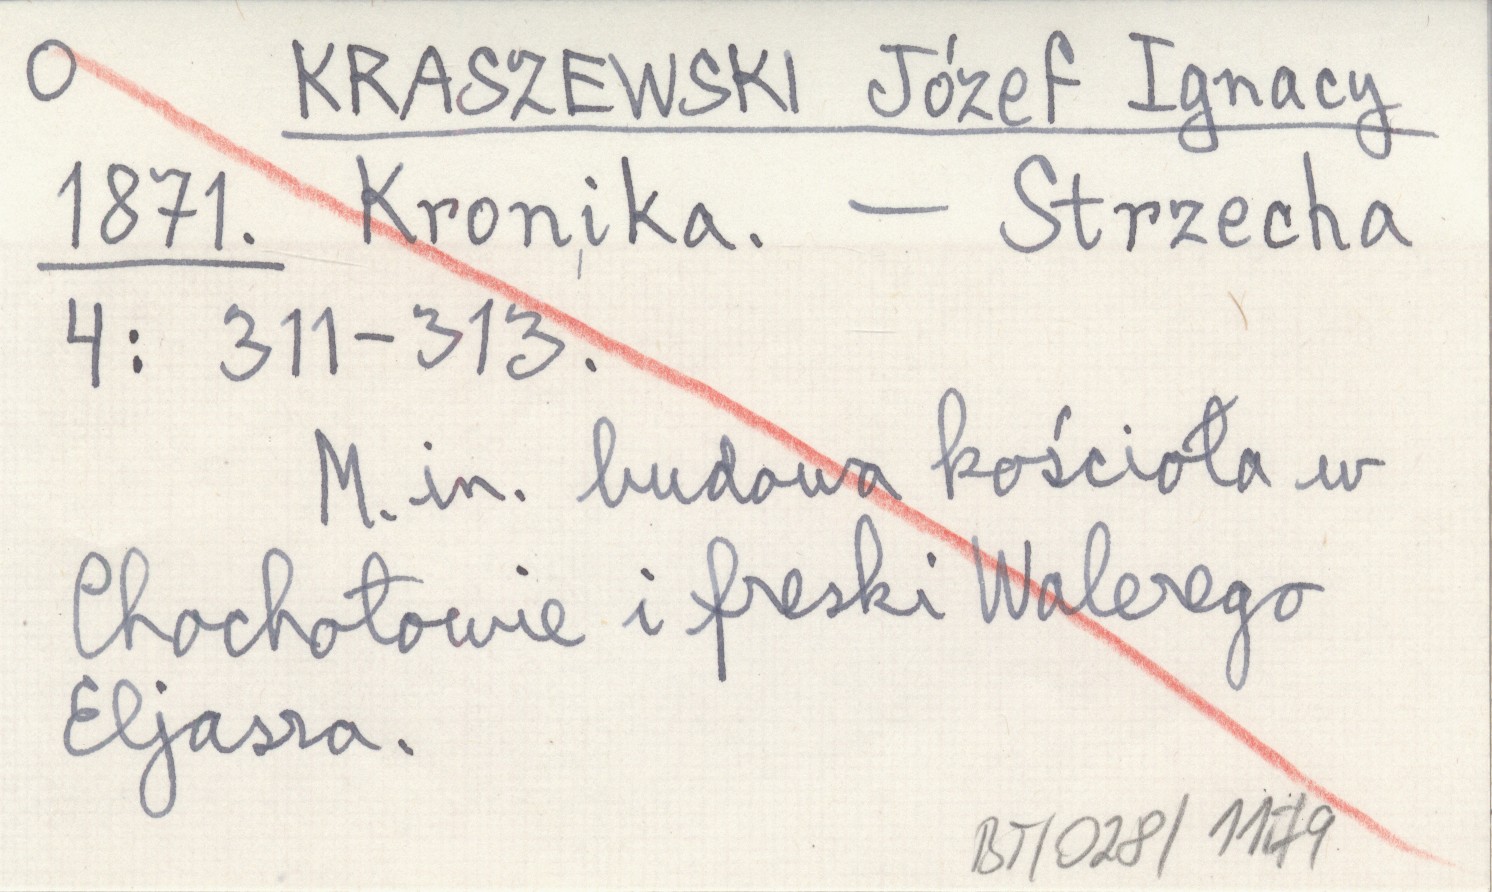 O KRASZEWSKI Józef Ignacy
1871. Kronika. — Strzecha
4: 311-313.
M. in. budowa kościoła w
Chochołowie i freski Walerego
Eljasza.
BT/028/ 1179